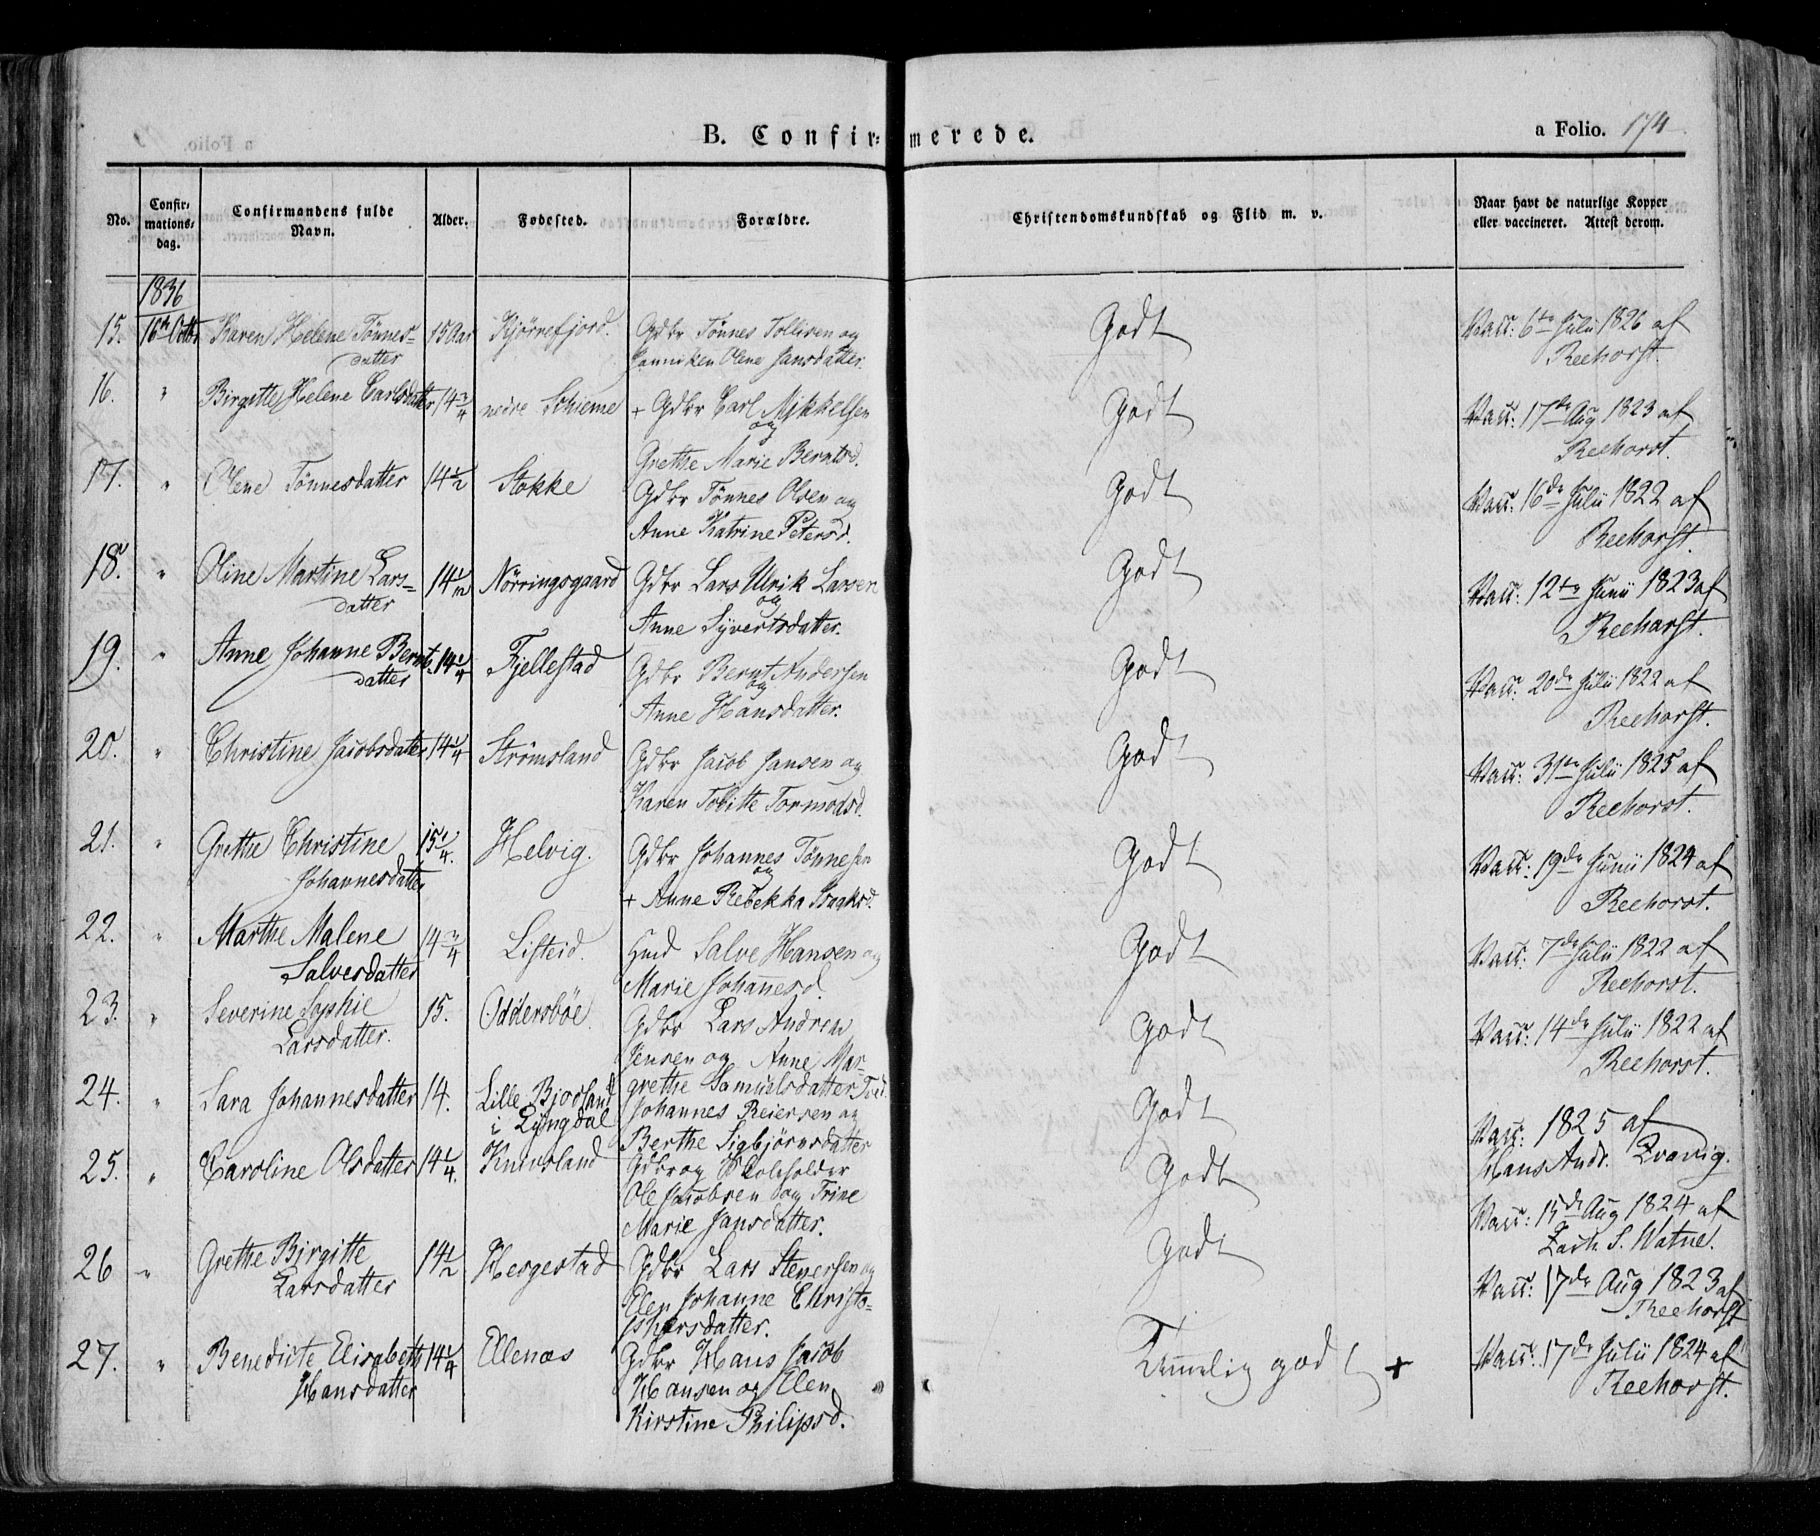 B. Confirmerede.
a Folio. 174
No.
Confirmations-dag.
Confirmandens fulde Navn.
Alder.
Fødested.
Forældre.
Christendomskundskab og Flid m. v.
Naar havt de naturlige Kopper eller vaccineret. Attest derom.
1836
15. 16de Octbr Karen Helene Tönnes- 15 Aar Kjörrefjord. Gdbr Tönnes Tollisen og Godt Vacc: 6te Julii 1826 af
datter Janniken Olene Jansdatter. Reehorst.
16. " Birgitte Helene Carlsdatter 14 3/4 nedre Schieme + Gdbr Carl Mikkelsen Godt Vacc: 17de Aug 1823 af
og Reehorst.
Grethe Marie Berntsd.
17. " Olene Tönnesdatter 14 1/2 Stokke Gdbr Tönnes Olsen og Godt Vacc: 16de Julii 1822 af
Anne Katrine Petersd. Reehorst.
18. " Oline Martine Lars- 14 1/2 Nörringsgaard Gdbr Lars Ulrik Larsen Godt Vacc: 12te Junii 1823 af
datter og Reehorst.
Anne Syvertsdatter.
19. " Anne Johanne Bernts- 14 1/4 Fjellestad Gdbr Bernt Andersen Godt Vacc: 20de Julii 1822 af
datter og Reehorst.
Anne Hansdatter.
20. " Christine Jacobsdatter 14 1/4 Strömsland Gdbr Jacob Jansen og Godt Vacc: 31te Julii 1825 af
Karen Tobitte Tormodsd. Reehorst.
21. " Grethe Christine 15 1/4. Helvig. Gdbr Johannes Tönnesen Godt Vacc: 19de Junii 1824 af
Johannesdatter og Reehorst.
+ Anne Rebekka Isaaksd.
22. " Marthe Malene 14 3/4 Listeid. Hmd Salve Hansen og Godt Vacc: 7de Julii 1822 af
Salvesdatter Marie Johannesd. Reehorst.
23. " Severine Sophie 15. Oddersböe. Gdbr Lars Andreu Godt Vacc: 14de Julii 1822 af
Larsdatter. Jensen og Anne Mar- Reehorst.
grethe Samuelsdatter Tvd.
24. " Sara Johannesdatter 14. Lille Bjorland Johannes Reiersen og Godt Vacc: 1825 af
i Lyngdal Berthe Sigbjörnsdatter Hans Andr.
25. " Caroline Olsdatter 14 1/4. Knivsland Gdbr og Skoleholder Godt Vacc: 15de Aug 1824 af
Ole Jacobsen og Trine Zach S. Watne.
Marie Jansdatter.
26 " Grethe Birgitte 14 1/2 Hesgestad Gdbr Lars Stenersen og Godt Vacc: 17de Aug 1823 af
Larsdatter Elen Johanne Christo- Reehorst
phersdatter.
27. " Benedicte Elisabeth 14 1/4 Ellenæs Gdbr Hans Jacob Temmelig godt + Vacc: 17de Julii 1824 af
Hansdatter Hansen og Elen Reehorst.
Kirstine Philipsd.